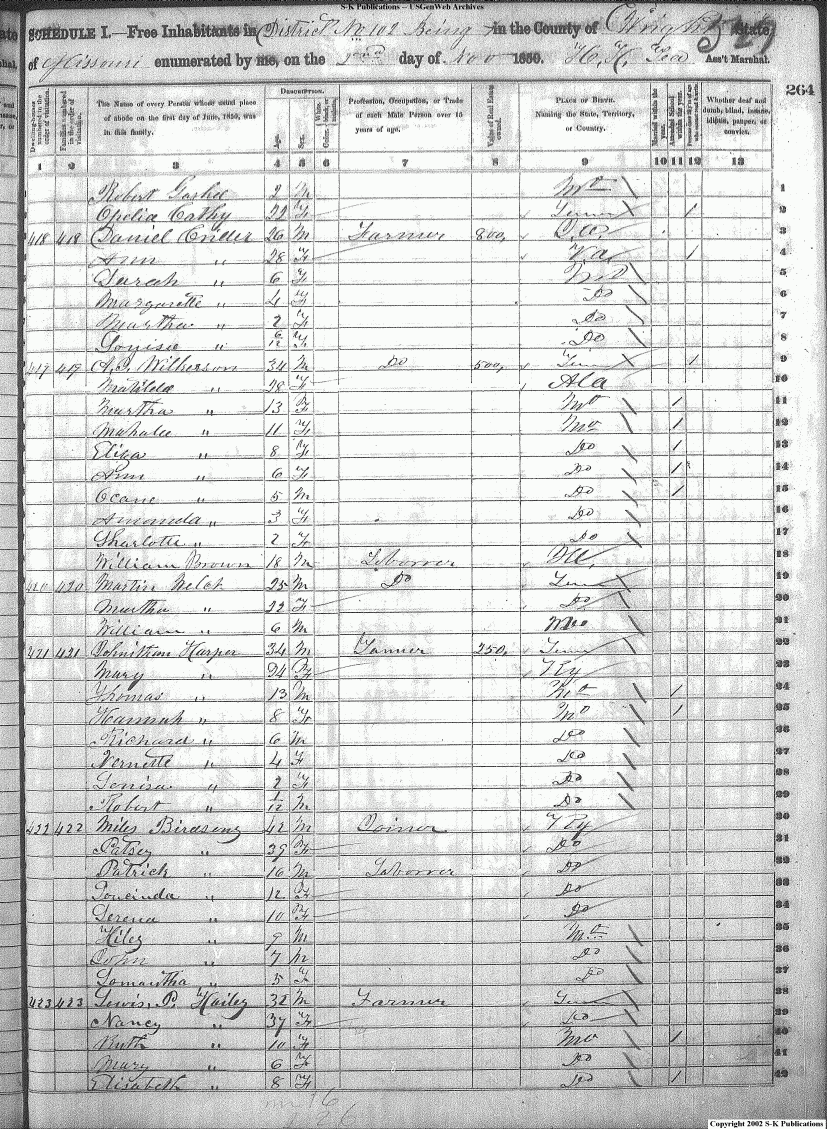 S-K Publications -- USGenWeb Archives
SCHEDULE I.—Free Inhabitants in District No 102 Being in the County of Wright State
of Missouri enumerated by me, on the 2nd day of Nov 1850. Ass't Marshal.
264
Dwelling-houses numbered in the order of visitation.
Families numbered in the order of visitation.
The Name of every Person whose usual place of abode on the first day of June, 1850, was in this family.
Description.
Age.
Sex.
Color.
Profession, Occupation, or Trade of each Male Person over 15 years of age.
Value of Real Estate owned.
Place of Birth. Naming the State, Territory, or Country.
Married within the year.
Attended School within the year.
Whether deaf and dumb, blind, insane, idiotic, pauper, or convict.
1 2 3 4 5 6 7 8 9 10 11 12 13
Robert 2 M Mo 1
Cathy 22 F Tenn 1 2
418 418 Daniel Crider 26 M Farmer 800 3
Ann " 28 F Va 1 4
Sarah " 6 F Mo 5
Margarette " 4 F Do 6
Martha " 2 F Do 7
Louisa " 6/12 F Do 8
419 419 A. Wilkerson 34 M Do 500 Ten 1 9
Matilda " 28 F Ala 10
Martha " 13 F Mo 1 11
Mahala " 11 F Mo 1 12
Eliza " 8 F Do 1 13
Ann " 6 F Do 1 14
Ocane " 5 M Do 1 15
Amanda " 3 F Do 16
Sharlotte " 2 F Do 17
William Brown 18 M Laborrer Ill 18
420 420 Martin Welch 25 M Do Tenn 19
Martha " 22 F Do 20
William " 6 M Mo 21
421 421 Johnithan Harper 34 M Tanner 250 Tenn 22
Mary " 34 F Ky 23
Thomas " 13 M Mo 1 24
Hannah " 8 F Mo 1 25
Richard " 6 M Do 26
Nernette " 4 F Do 27
Louisa " 2 F Do 28
Robert " 1/12 M Do 29
422 422 Miles Birdsong 42 M Coiner Ky 30
Patsey " 39 F Do 31
Patrick " 16 M Laborrer Do 32
" 12 F Do 33
Serena " 10 F Do 34
" 9 M Mo 35
John " 7 M Do 36
Samantha " 5 F Do 37
423 423 Lewis P. Hailey 32 M Farmer Tenn 38
Nancy " 37 F Do 39
Ruth " 10 F Mo 1 40
Mary " 6 F Do 41
Elisabeth " 8 F Do 1 42
Copyright 2002 S-K Publications